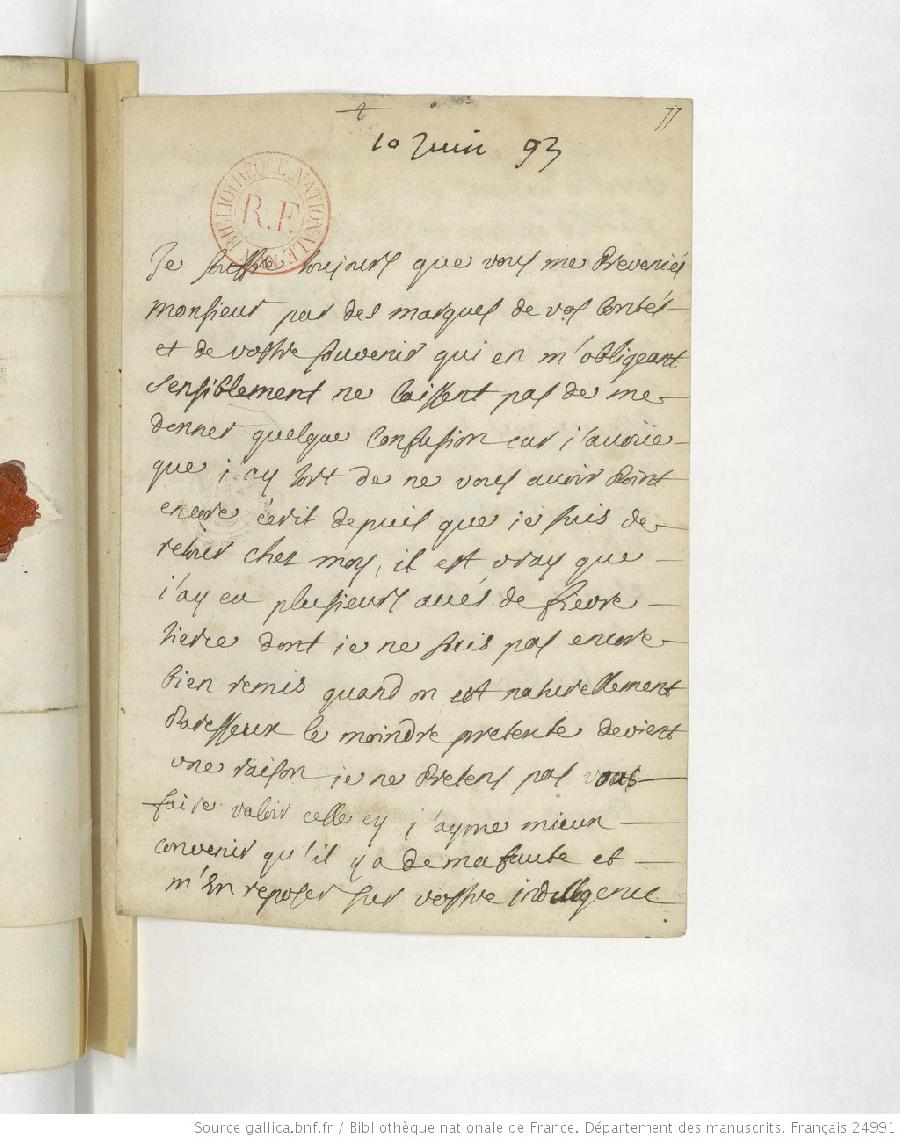 77
10 Juin 93
BIBLIOTHEQUE NATIONALE
R.F.
Je souffre toujours que vous me Preveniés
monsieur par des marques de vos bontés
et de vostre souvenir qui en m'obligeant
sensiblement ne laissent pas de me
donner quelque confusion car j'avoüe
que j'ay tort de ne vous avoir Point
encore écrit depuis que je suis de
retour chez moy, il est vray que
j'ay eu plusieurs accés de fievre
tierce dont je ne suis pas encore
bien remis quand on est naturellement
Paresseux le moindre pretexte devient
une raison je ne Pretens pas vous
faire valoir celle cy j'ayme mieux
convenir qu'il y a de ma faute et
m'en reposer sur vostre indulgence
Source gallica.bnf.fr / Bibliothèque nationale de France. Département des manuscrits. Français 24991